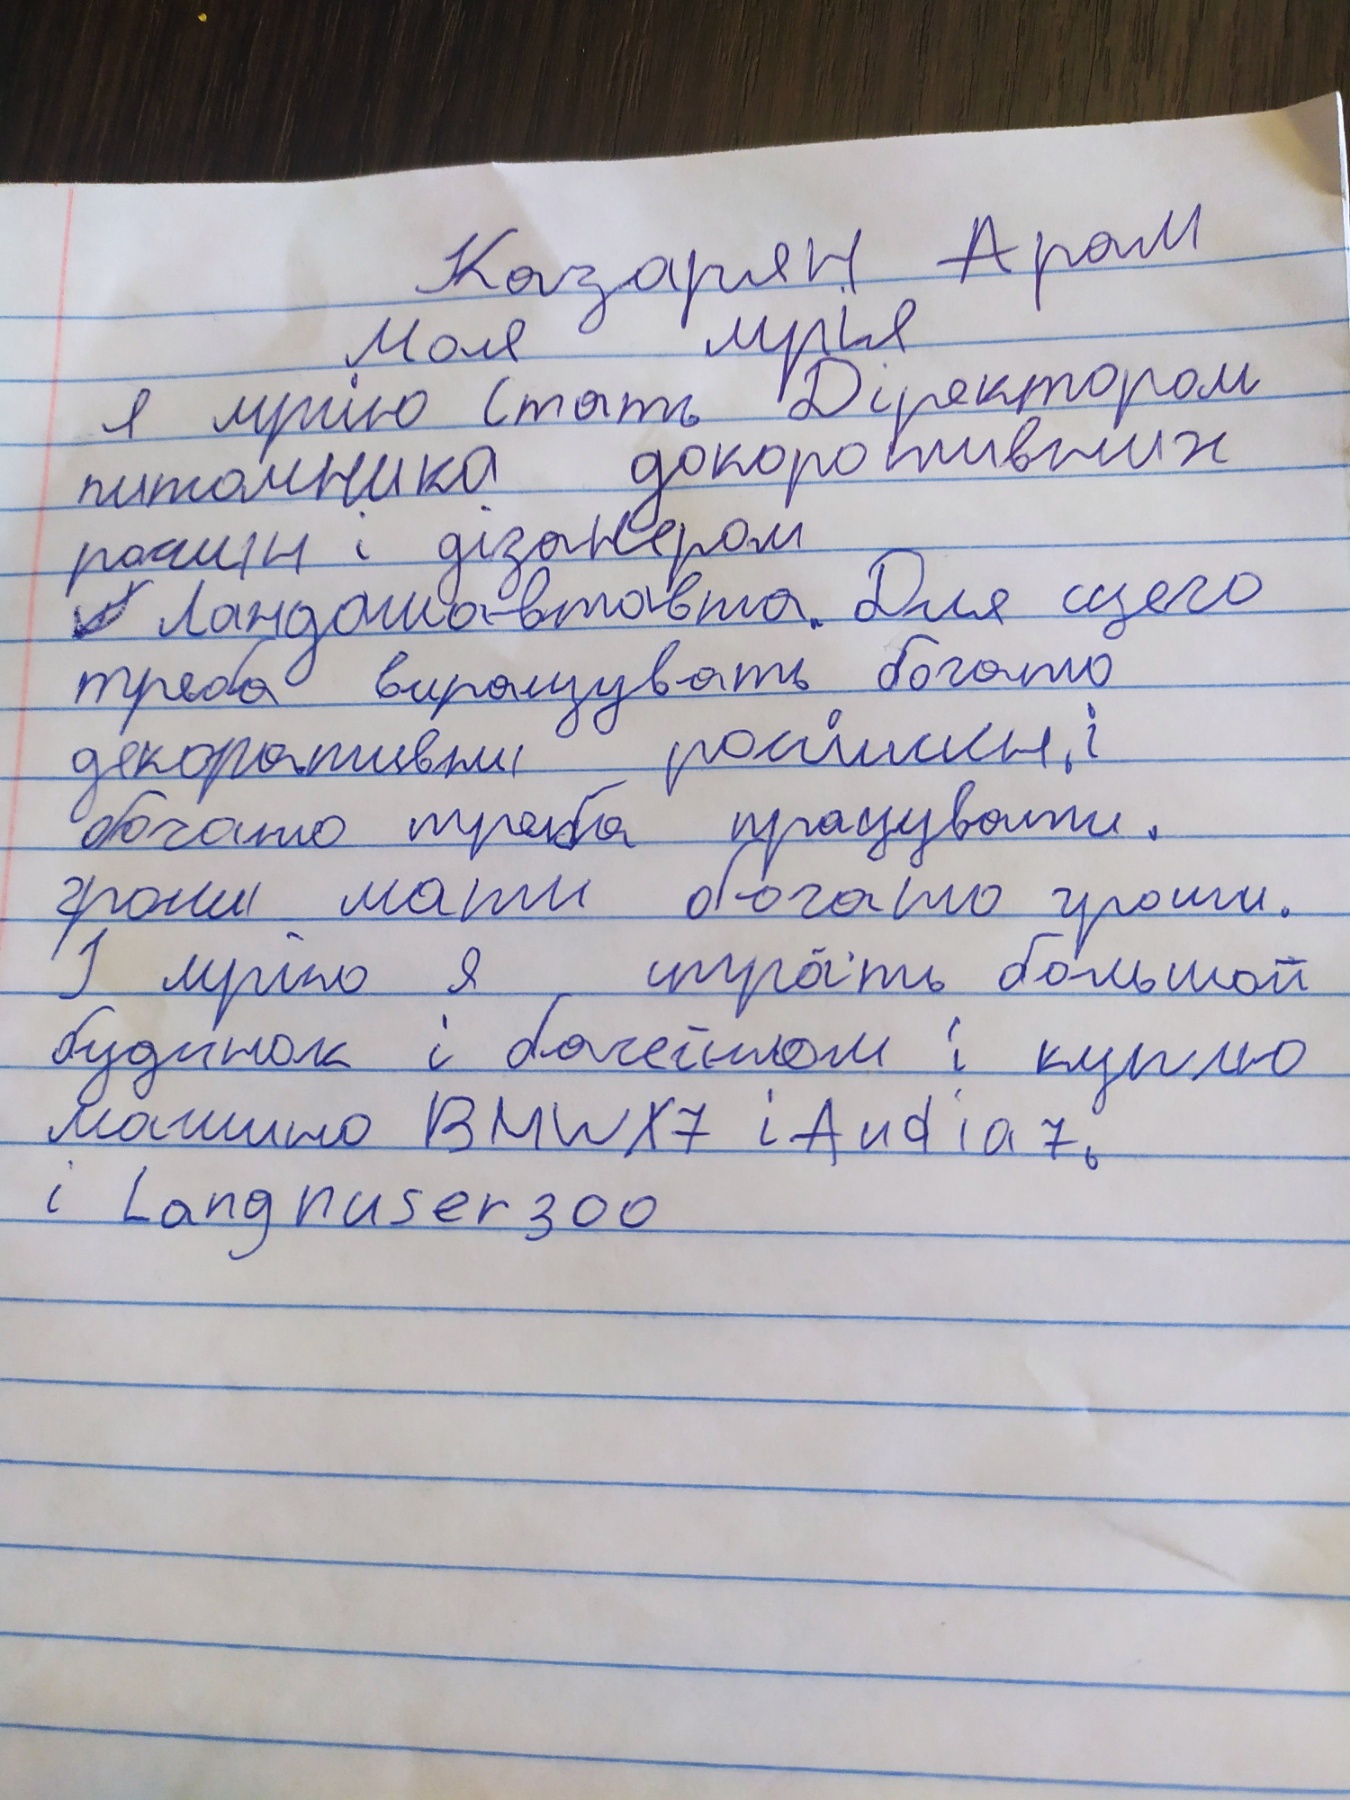 Казарян Арам
Моя мрія
я мрію стать Діректором
питомника докоротивних
рочин і дізанером
Ландошавтавта. Для сцего
треба виращувать богато
декоративни росіини, і
богато треба працувати.
гроши мати богато гроши.
І мрію я большой
будинок і басейном і куплю
машино BMWX7 і Audi a 7,
і Langnuser 300